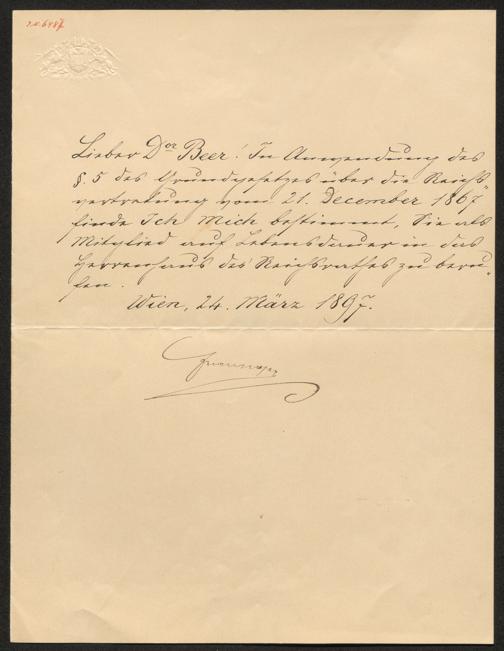 Lieber Dor Beer! In Anwendung des
§. 5 des Grundgesetzes über die Reichs-
vertretung vom 21. December 1867
finde Ich Mich bestimmt, Sie als
Mitglied auf Lebensdauer in das
Herrenhaus des Reichsrathes zu beru-
fen.
Wien, 24. März 1897.